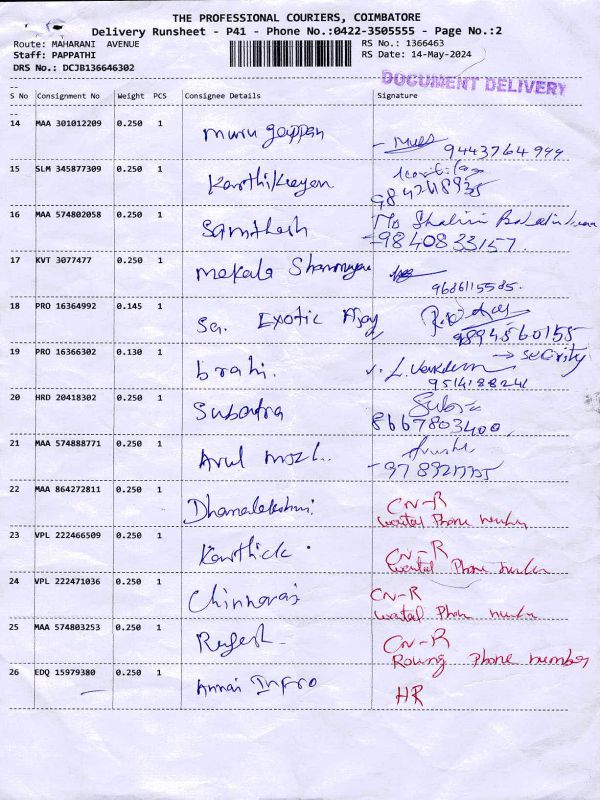 THE PROFESSIONAL COURIERS, COIMBATORE
Delivery Runsheet - P41 - Phone No.:0422-3505555 - Page No.:2
Route: MAHARANI AVENUE RS No.: 1366463
Staff: PAPPATHI RS Date: 14-May-2024
DRS No.: DCJB136646302
DOCUMENT DELIVERY
S No Consignment No Weight PCS Consignee Details Signature
14 MAA 301012209 0.250 1
9443764999
15 SLM 345877309 0.250 1 Karthikeyan
16 MAA 574802058 0.250 1
9840833157
17 KVT 3077477 0.250 1 mekala
9686115585
18 PRO 16364992 0.145 1 Sa. Exotic
9894560155
19 PRO 16366302 0.130 1 brahi. → security
9514188241
20 HRD 20418302 0.250 1 Subatra
8667803400
21 MAA 574888771 0.250 1 Arul
22 MAA 864272811 0.250 1 Dhanalekshmi CN-R
Phone number
23 VPL 222466509 0.250 1 Karthick CN-R
Phone number
24 VPL 222471036 0.250 1 Chinnaraj CN-R
Phone number
25 MAA 574803253 0.250 1 CN-R
Roung Phone number
26 EDQ 15979380 0.250 1 Annai Infro HR